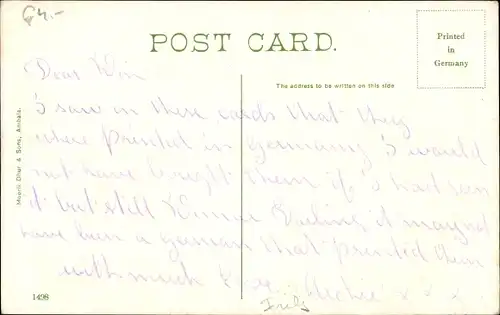 G 4.-
POST CARD.
Printed
in
Germany
The address to be written on this side
Dear Win
I saw in these cards that they
where printed in germany I would
not have bought them if I had seen
it but still it may not
have been a german that printed them
with much love Archie x x x
Moorli Dhur & Sons, Ambala.
1498
India